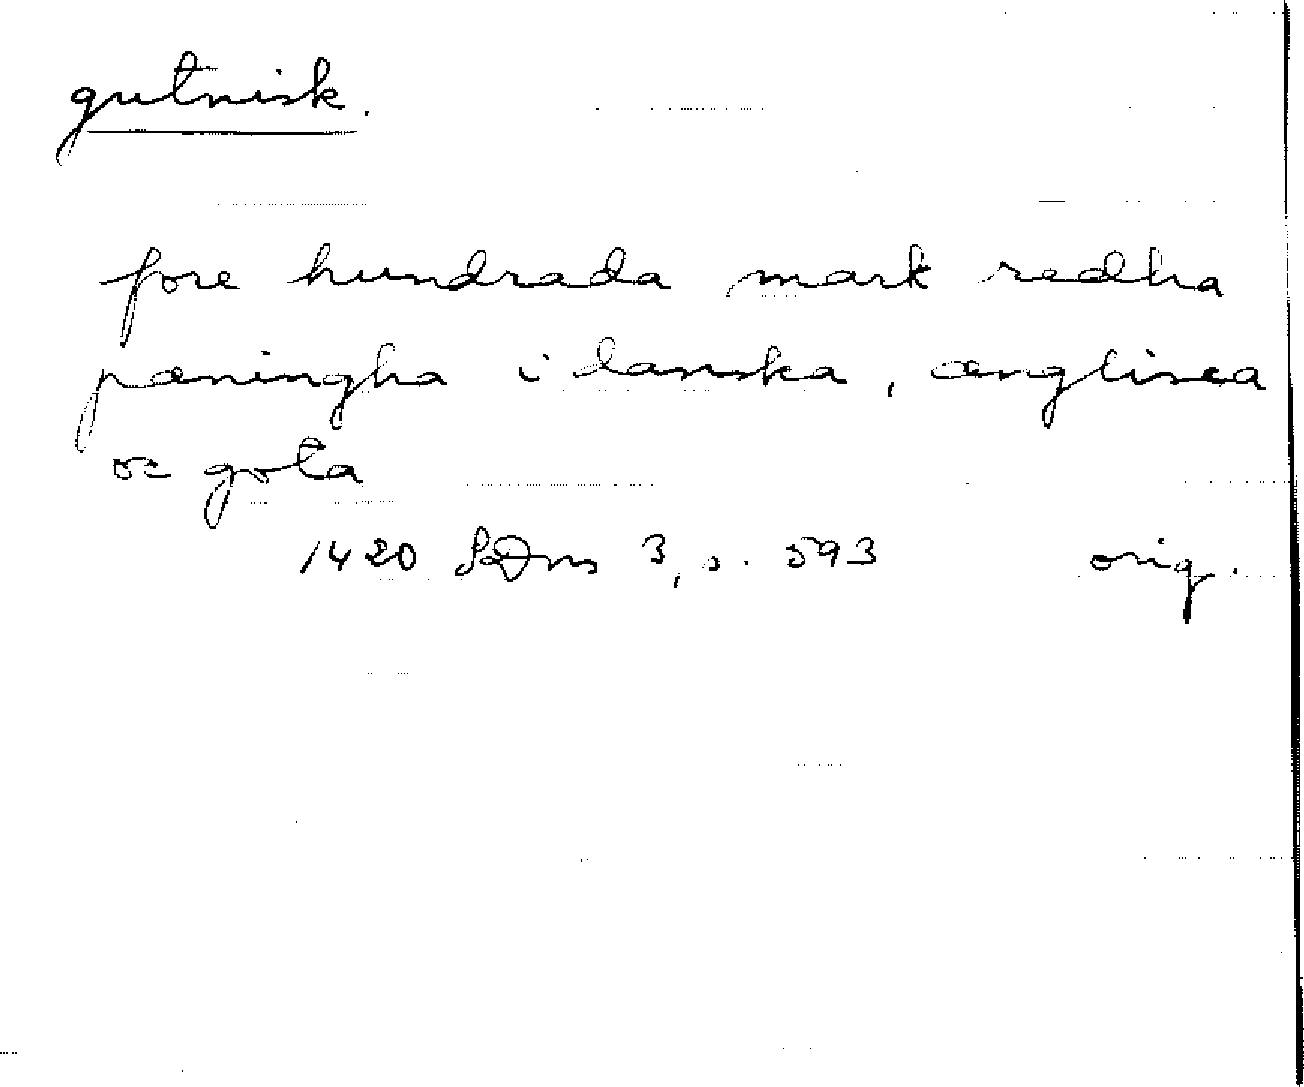 gutnisk.
fore hundrada mark redha
pæningha i danska, ænglisca
oc gota
1420 SDns 3, s. 593 orig.